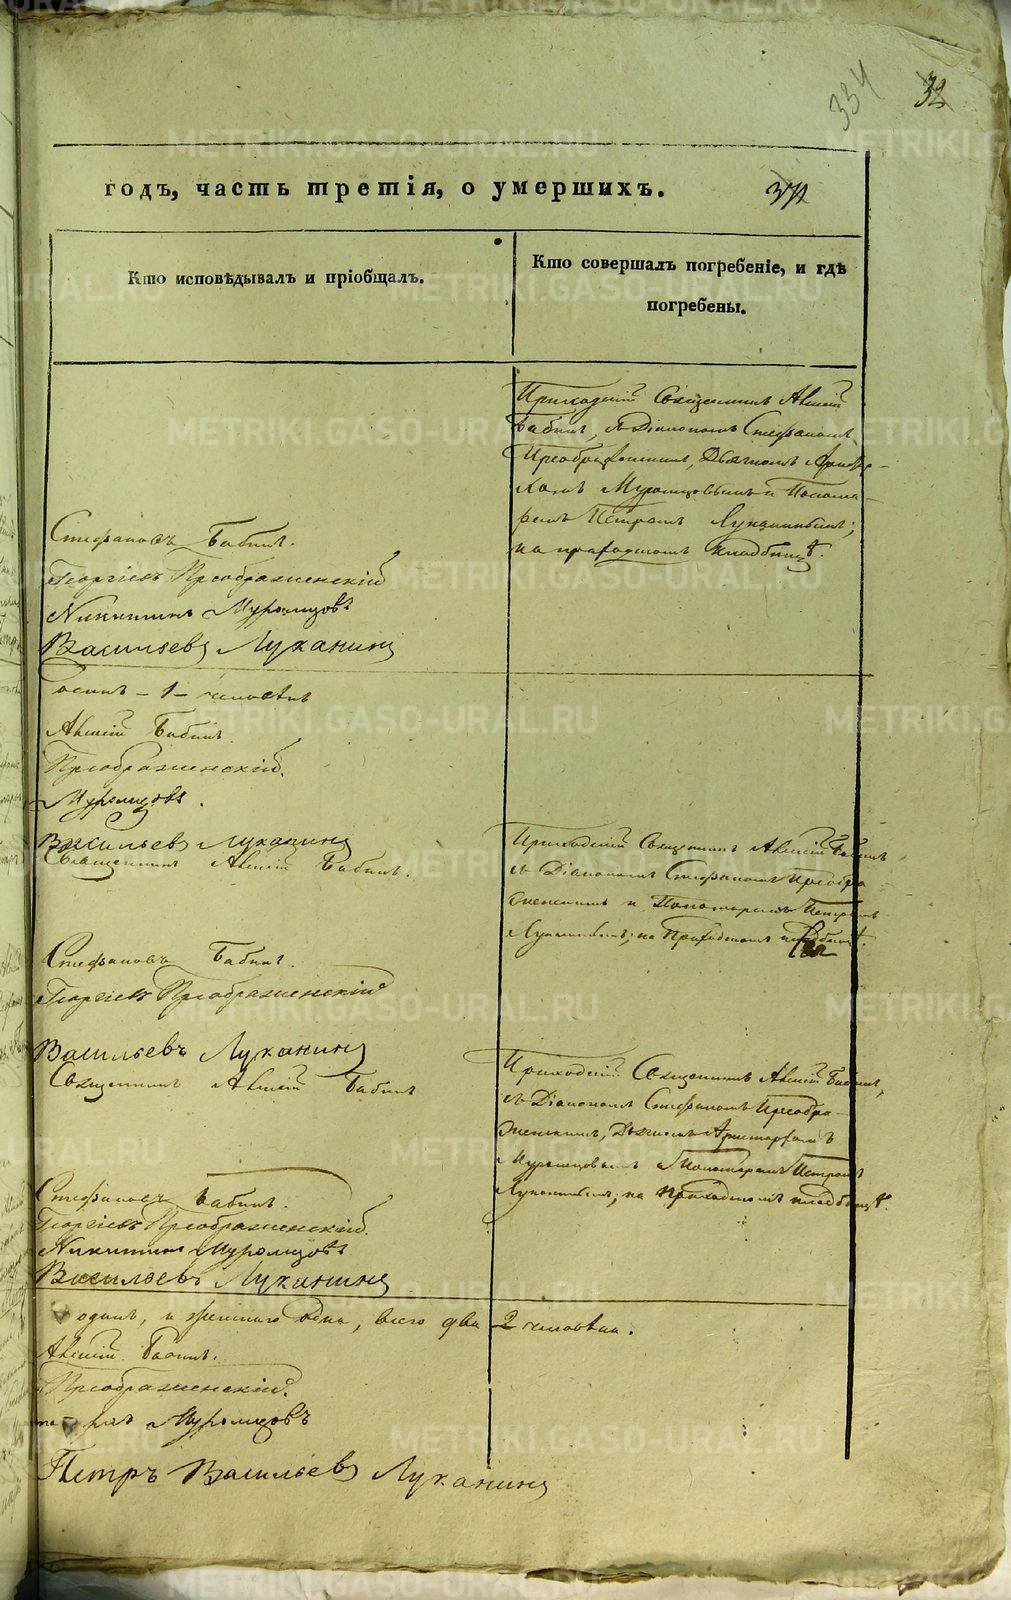 334 32
годъ, часть третія, о умершихъ.
Кто исповѣдывалъ и пріобщалъ.
Кто совершалъ погребеніе, и гдѣ
погребены.
Приходскій Священникъ Алексій
Бабинъ, съ Діакономъ Стефаномъ
Преображенскимъ, Дьячкомъ Аристар-
хомъ Муромцовымъ и Понома-
ремъ Петромъ Луканинымъ;
на приходскомъ кладбищѣ.
Стефановъ Бабинъ.
Георгіевъ Преображенскій
Никитинъ Муромцовъ
Васильевъ Луканинъ
одинъ - 1 - человѣкъ
Алексій Бабинъ.
Преображенскій.
Муромцовъ.
Васильевъ Луканинъ
Священникъ Алексій Бабинъ.
Приходскій Священникъ Алексій Бабинъ
съ Діакономъ Стефаномъ Преобра-
женскимъ и Пономаремъ Петромъ
Луканинымъ; на Приходскомъ кладбищѣ.
Стефановъ Бабинъ.
Георгіевъ Преображенскій
Васильевъ Луканинъ
Священникъ Алексій Бабинъ
Приходскій Священникъ Алексій Бабинъ,
съ Діакономъ Стефаномъ Преобра-
женскимъ, Дьячкомъ Аристархомъ
Муромцовымъ и Пономаремъ Петромъ
Луканинымъ; на приходскомъ кладбищѣ.
Стефановъ Бабинъ.
Георгіевъ Преображенскій.
Никитинъ Муромцовъ
Васильевъ Луканинъ
одинъ, и женскаго одна, всего два 2 человѣка.
Алексій Бабинъ.
Преображенскій.
Муромцовъ
Петръ Васильевъ Луканинъ
METRIKI.GASO-URAL.RU